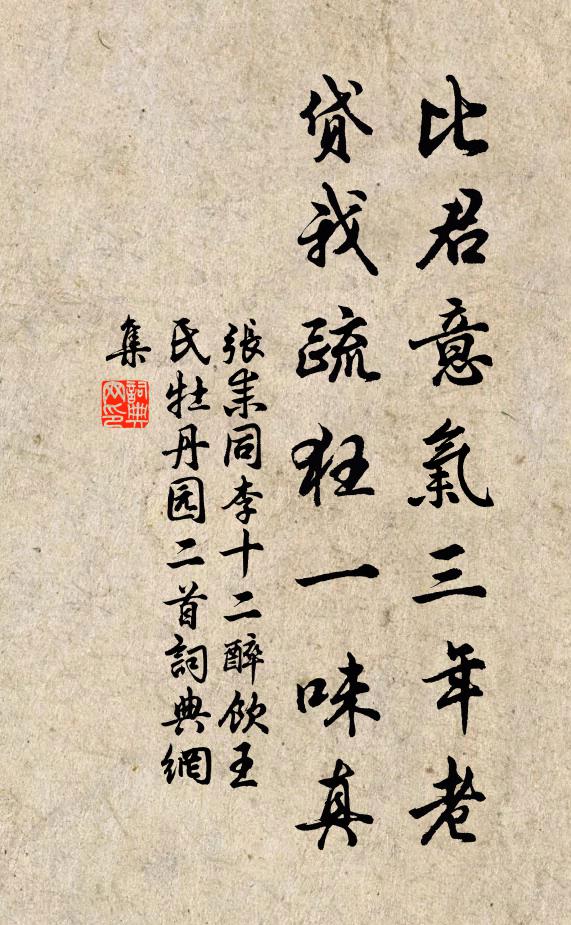 比君意氣三年老
貸我疏狂一味真
張耒同李十二醉飲王
氏牡丹园二首詞典網
集
詞典
网印